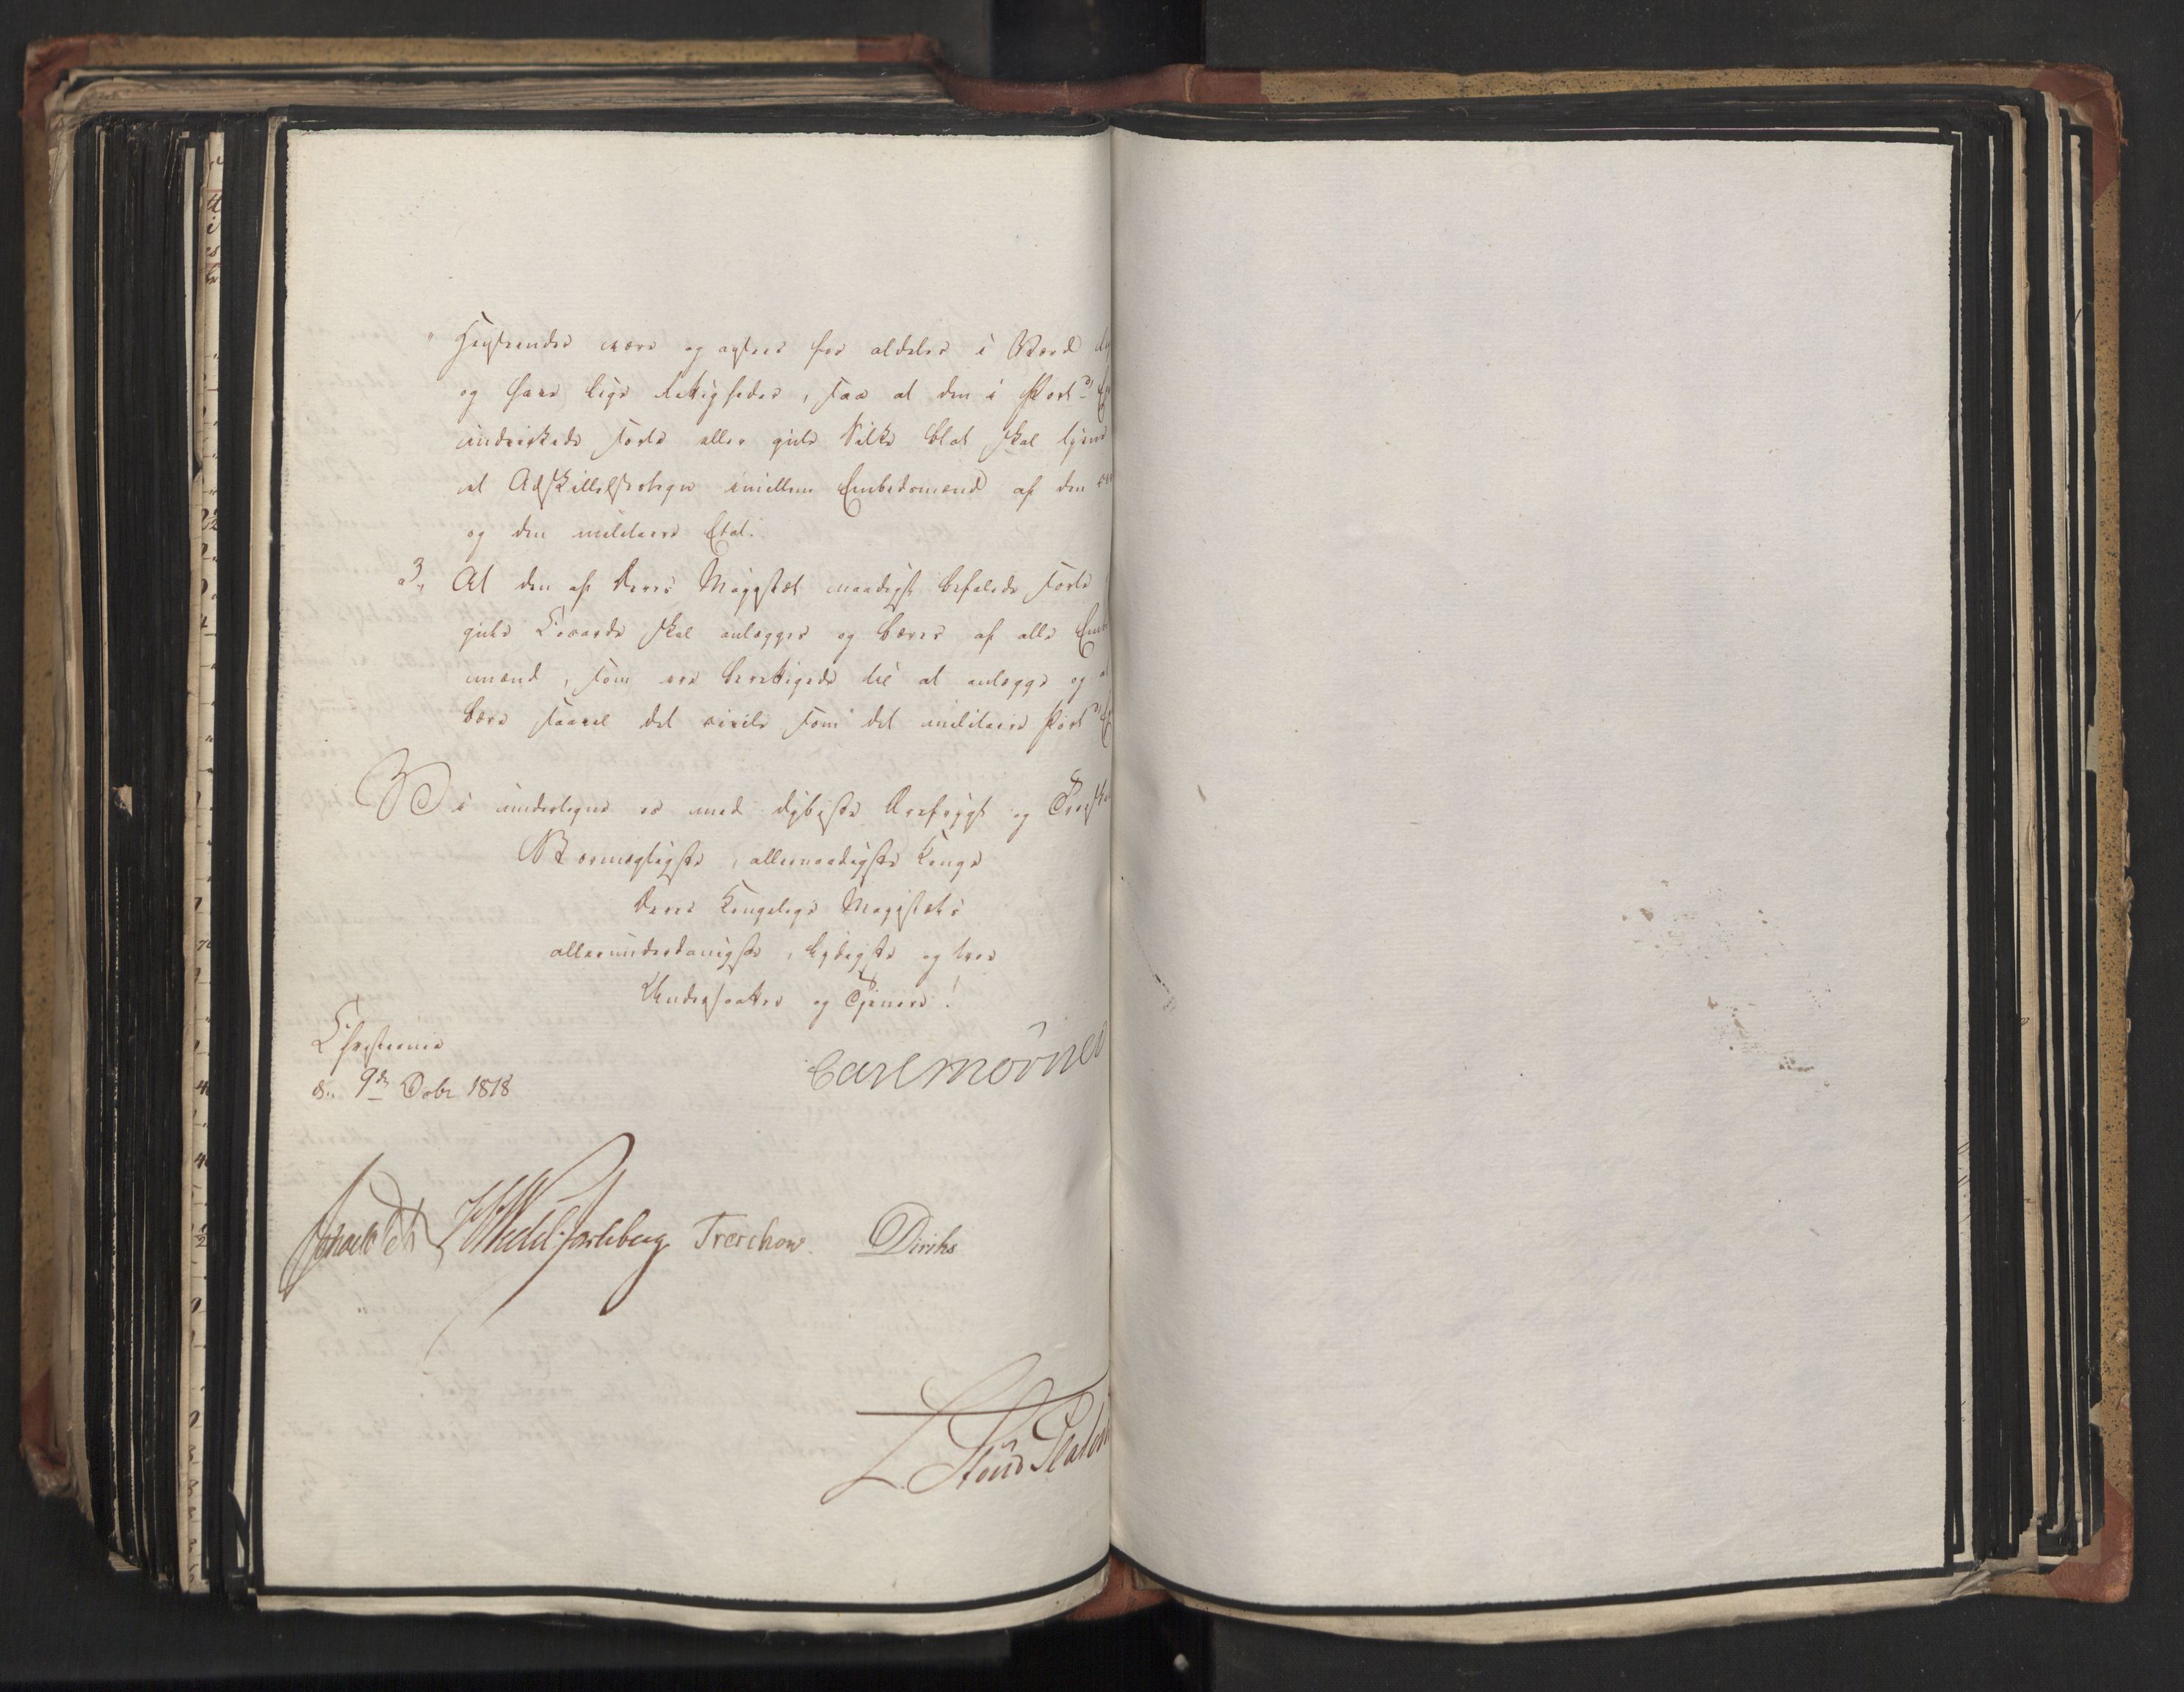 Henseender være og agtes for aldeles i Værd
og have lige Rettigheder, saa at den i Port d'
undvirkede sorte eller gule Silke blot skal tjene
at Adskillelsestegn imellem Embedsmænd af den
og den militaire Etat.
3, At den af Deres Majestæt naadigst befalede sorte
gule Kokarde skal anlægges og bæres af alle
mænd, som ere berettigede til at anlægge og
bære saavel det civile som det militaire Port d'
Vi undertegne os med dybeste Ærefrygt og
Stormægtigste, allernaadigste Konge
Deres Kongelige Majestæts
allerunderdanigste, lydigste og troe
Undersaatter og Tjenere!
Christiania
d. 9de Dcbr 1818
Carl Mörner
HWedel-Jarlsberg Treschow. Diriks
L. Stoud Platou